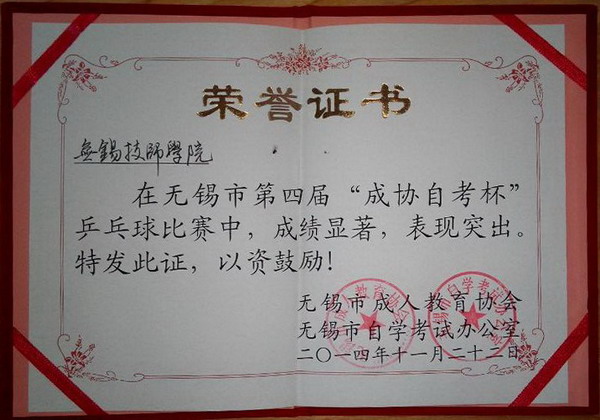 荣誉证书
無錫技師學院
在无锡市第四届“成协自考杯”
乒乓球比赛中，成绩显著，表现突出。
特发此证，以资鼓励！
无锡市成人教育协会
无锡市自学考试办公室
二〇一四年十一月二十二日